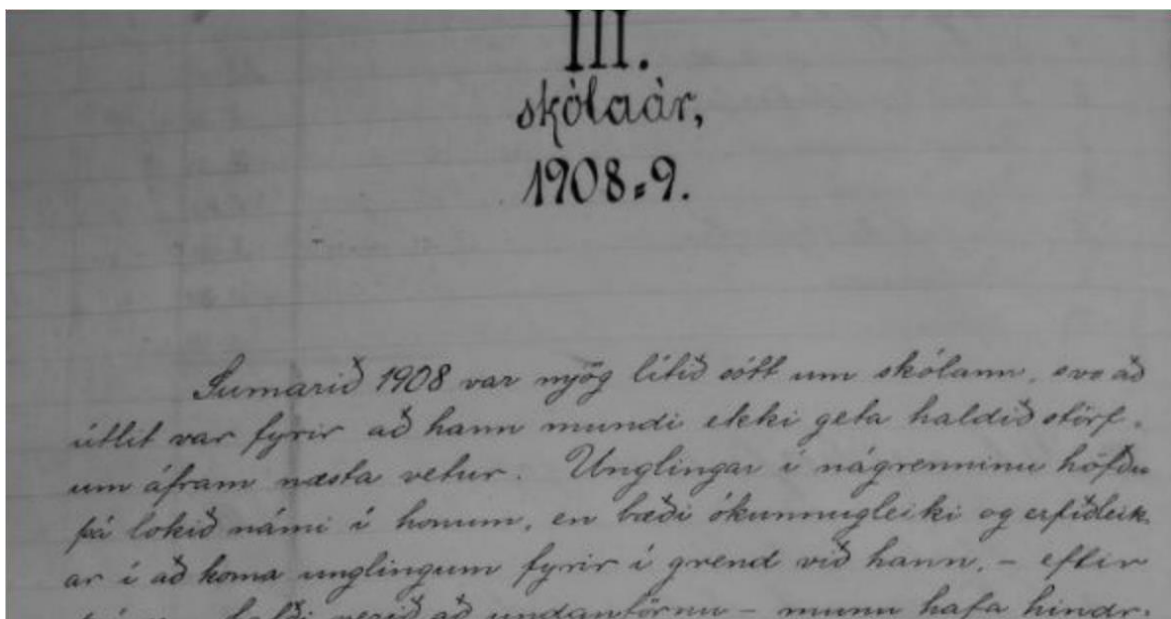 III.
skólaár,
1908=9.
Sumarið 1908 var mjög lítið sótt um skólann, svo að
útlit var fyrir að hann mundi ekki geta haldið störf-
um áfram næsta vetur. Unglingar í nágrenninu höfðu
þá lokið námi í honum, en bæði ókunnugleiki og erfiðleik-
ar í að koma unglingum fyrir í grend við hann, – eftir
verið að undanförnu – munu hafa hindr-